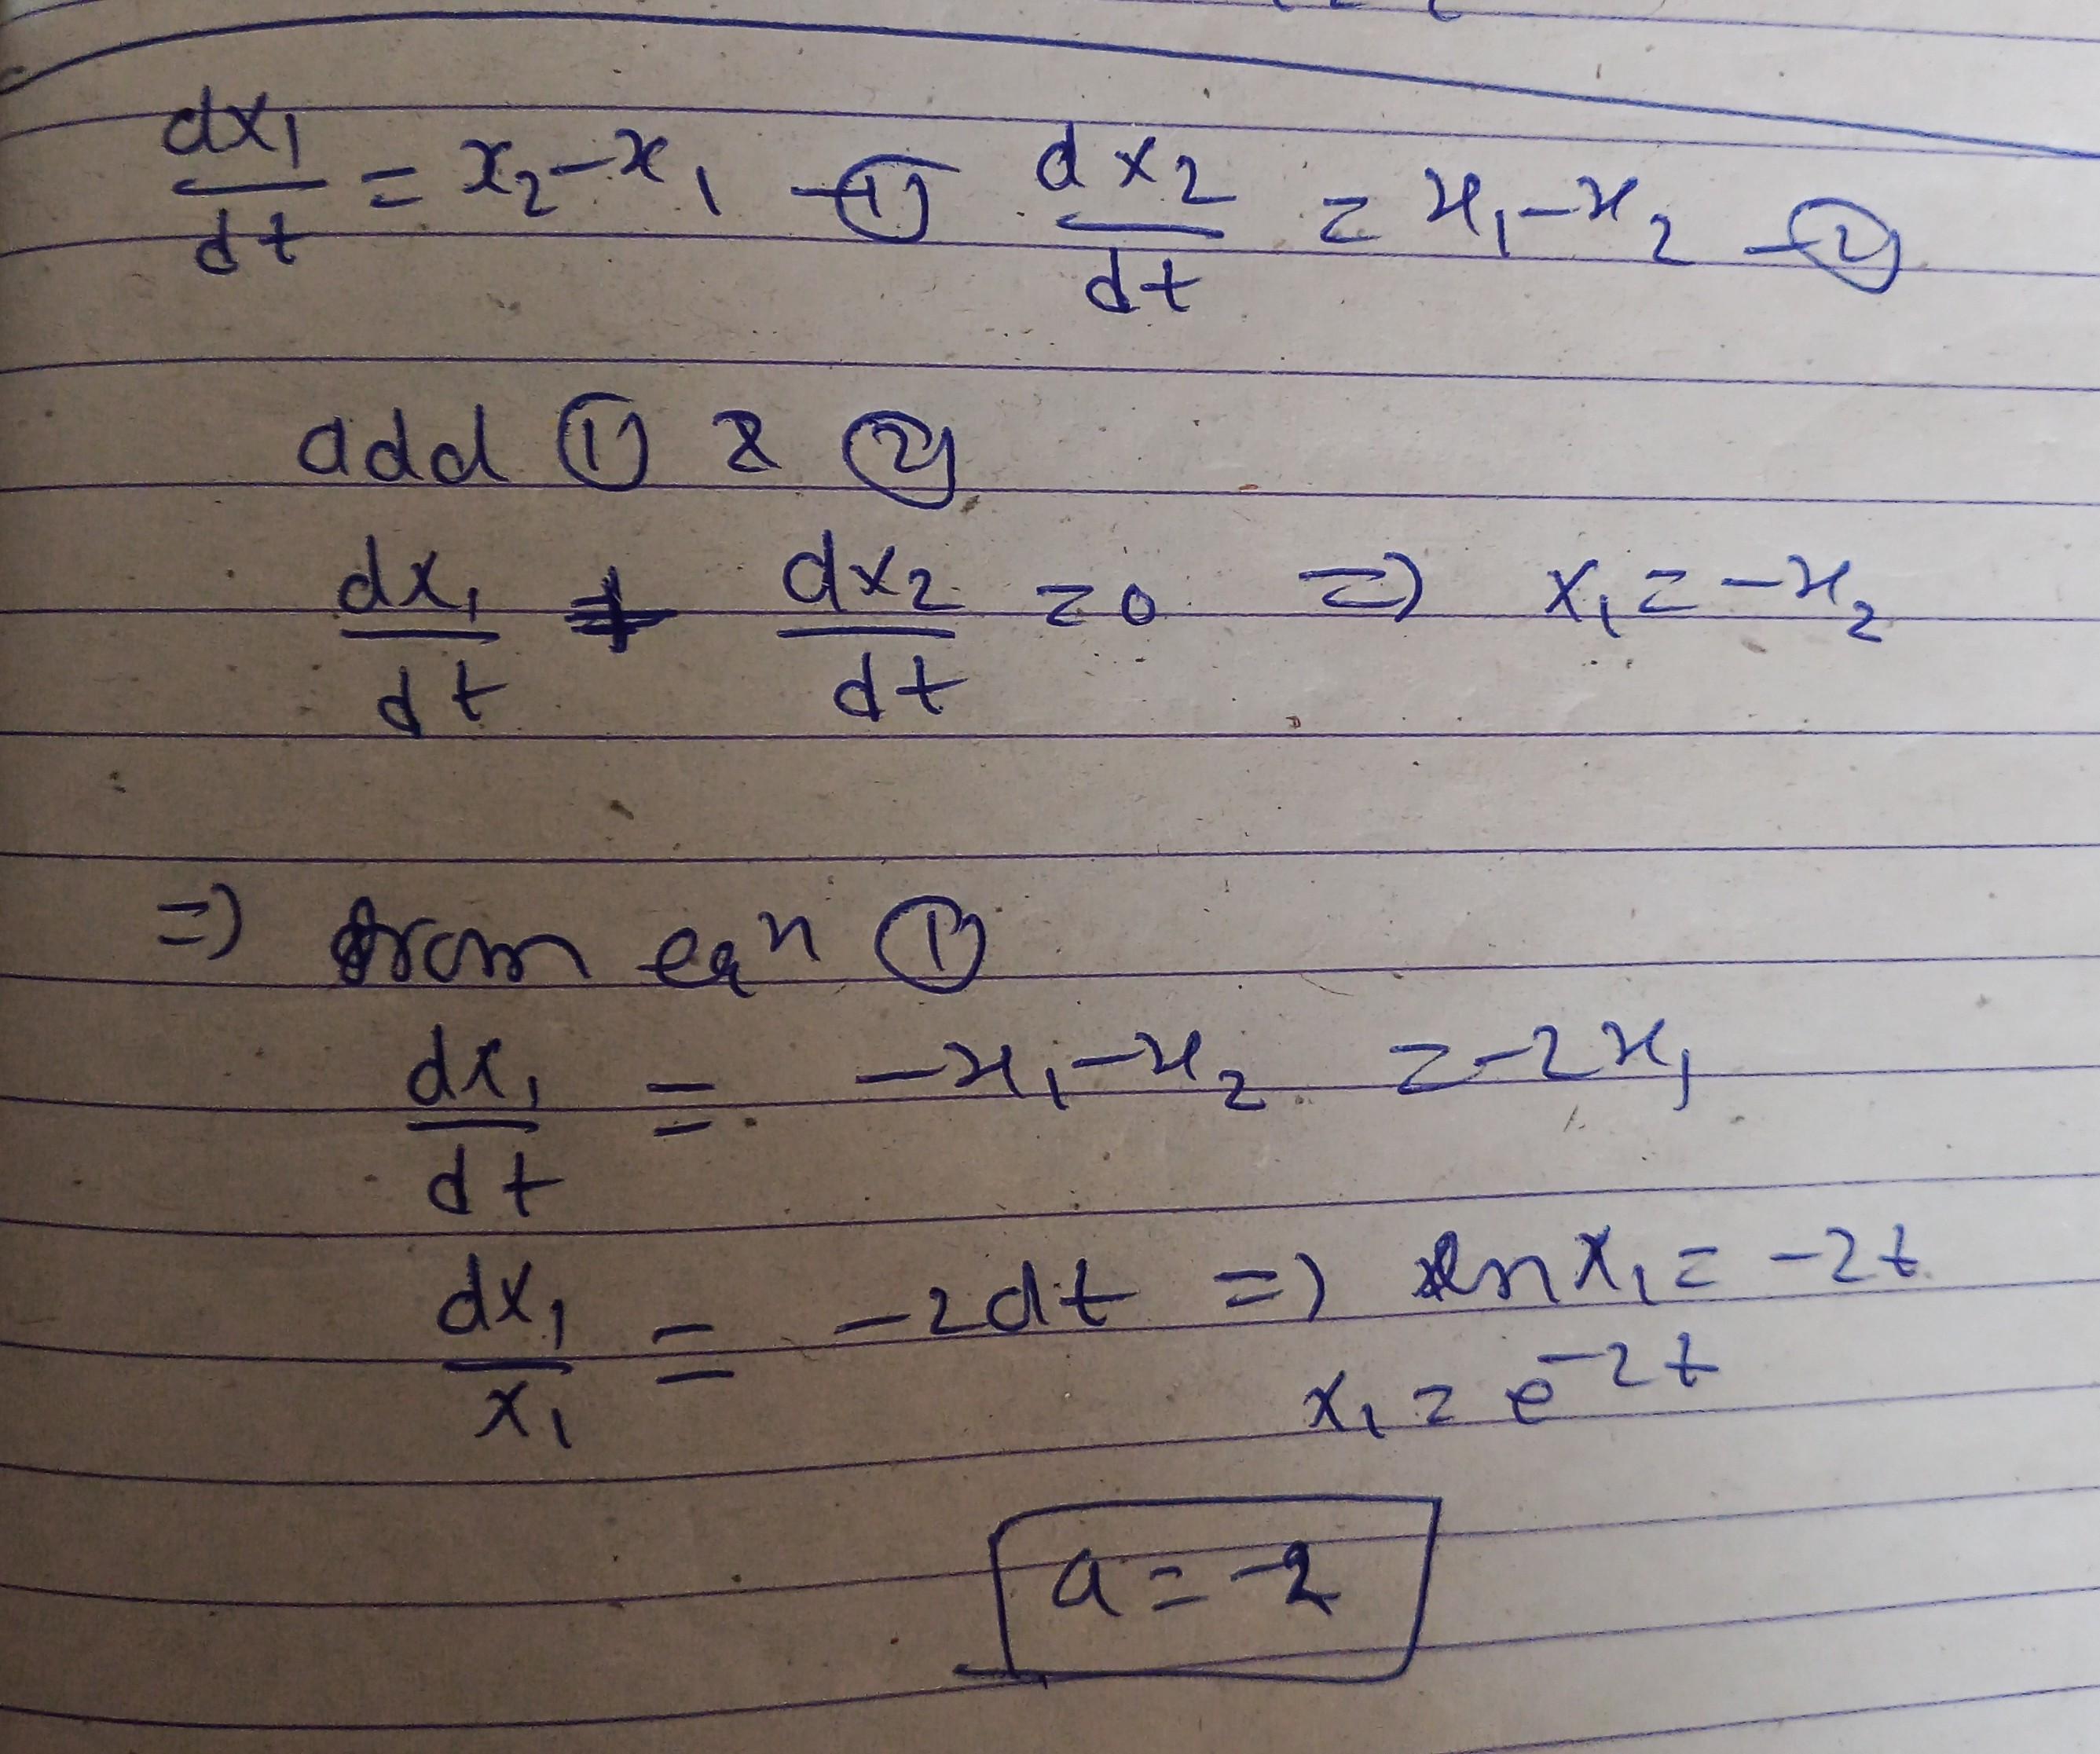 dx₁/dt = x₂ - x₁ — ① dx₂/dt = x₁ - x₂ — ②
add ① & ②
dx₁/dt + dx₂/dt = 0 ⇒ x₁ = -x₂
⇒ from eqⁿ ①
dx₁/dt = -x₁ - x₂ = -2x₁
dx₁/x₁ = -2dt ⇒ ln x₁ = -2t
x₁ = e^-2t
a = -2